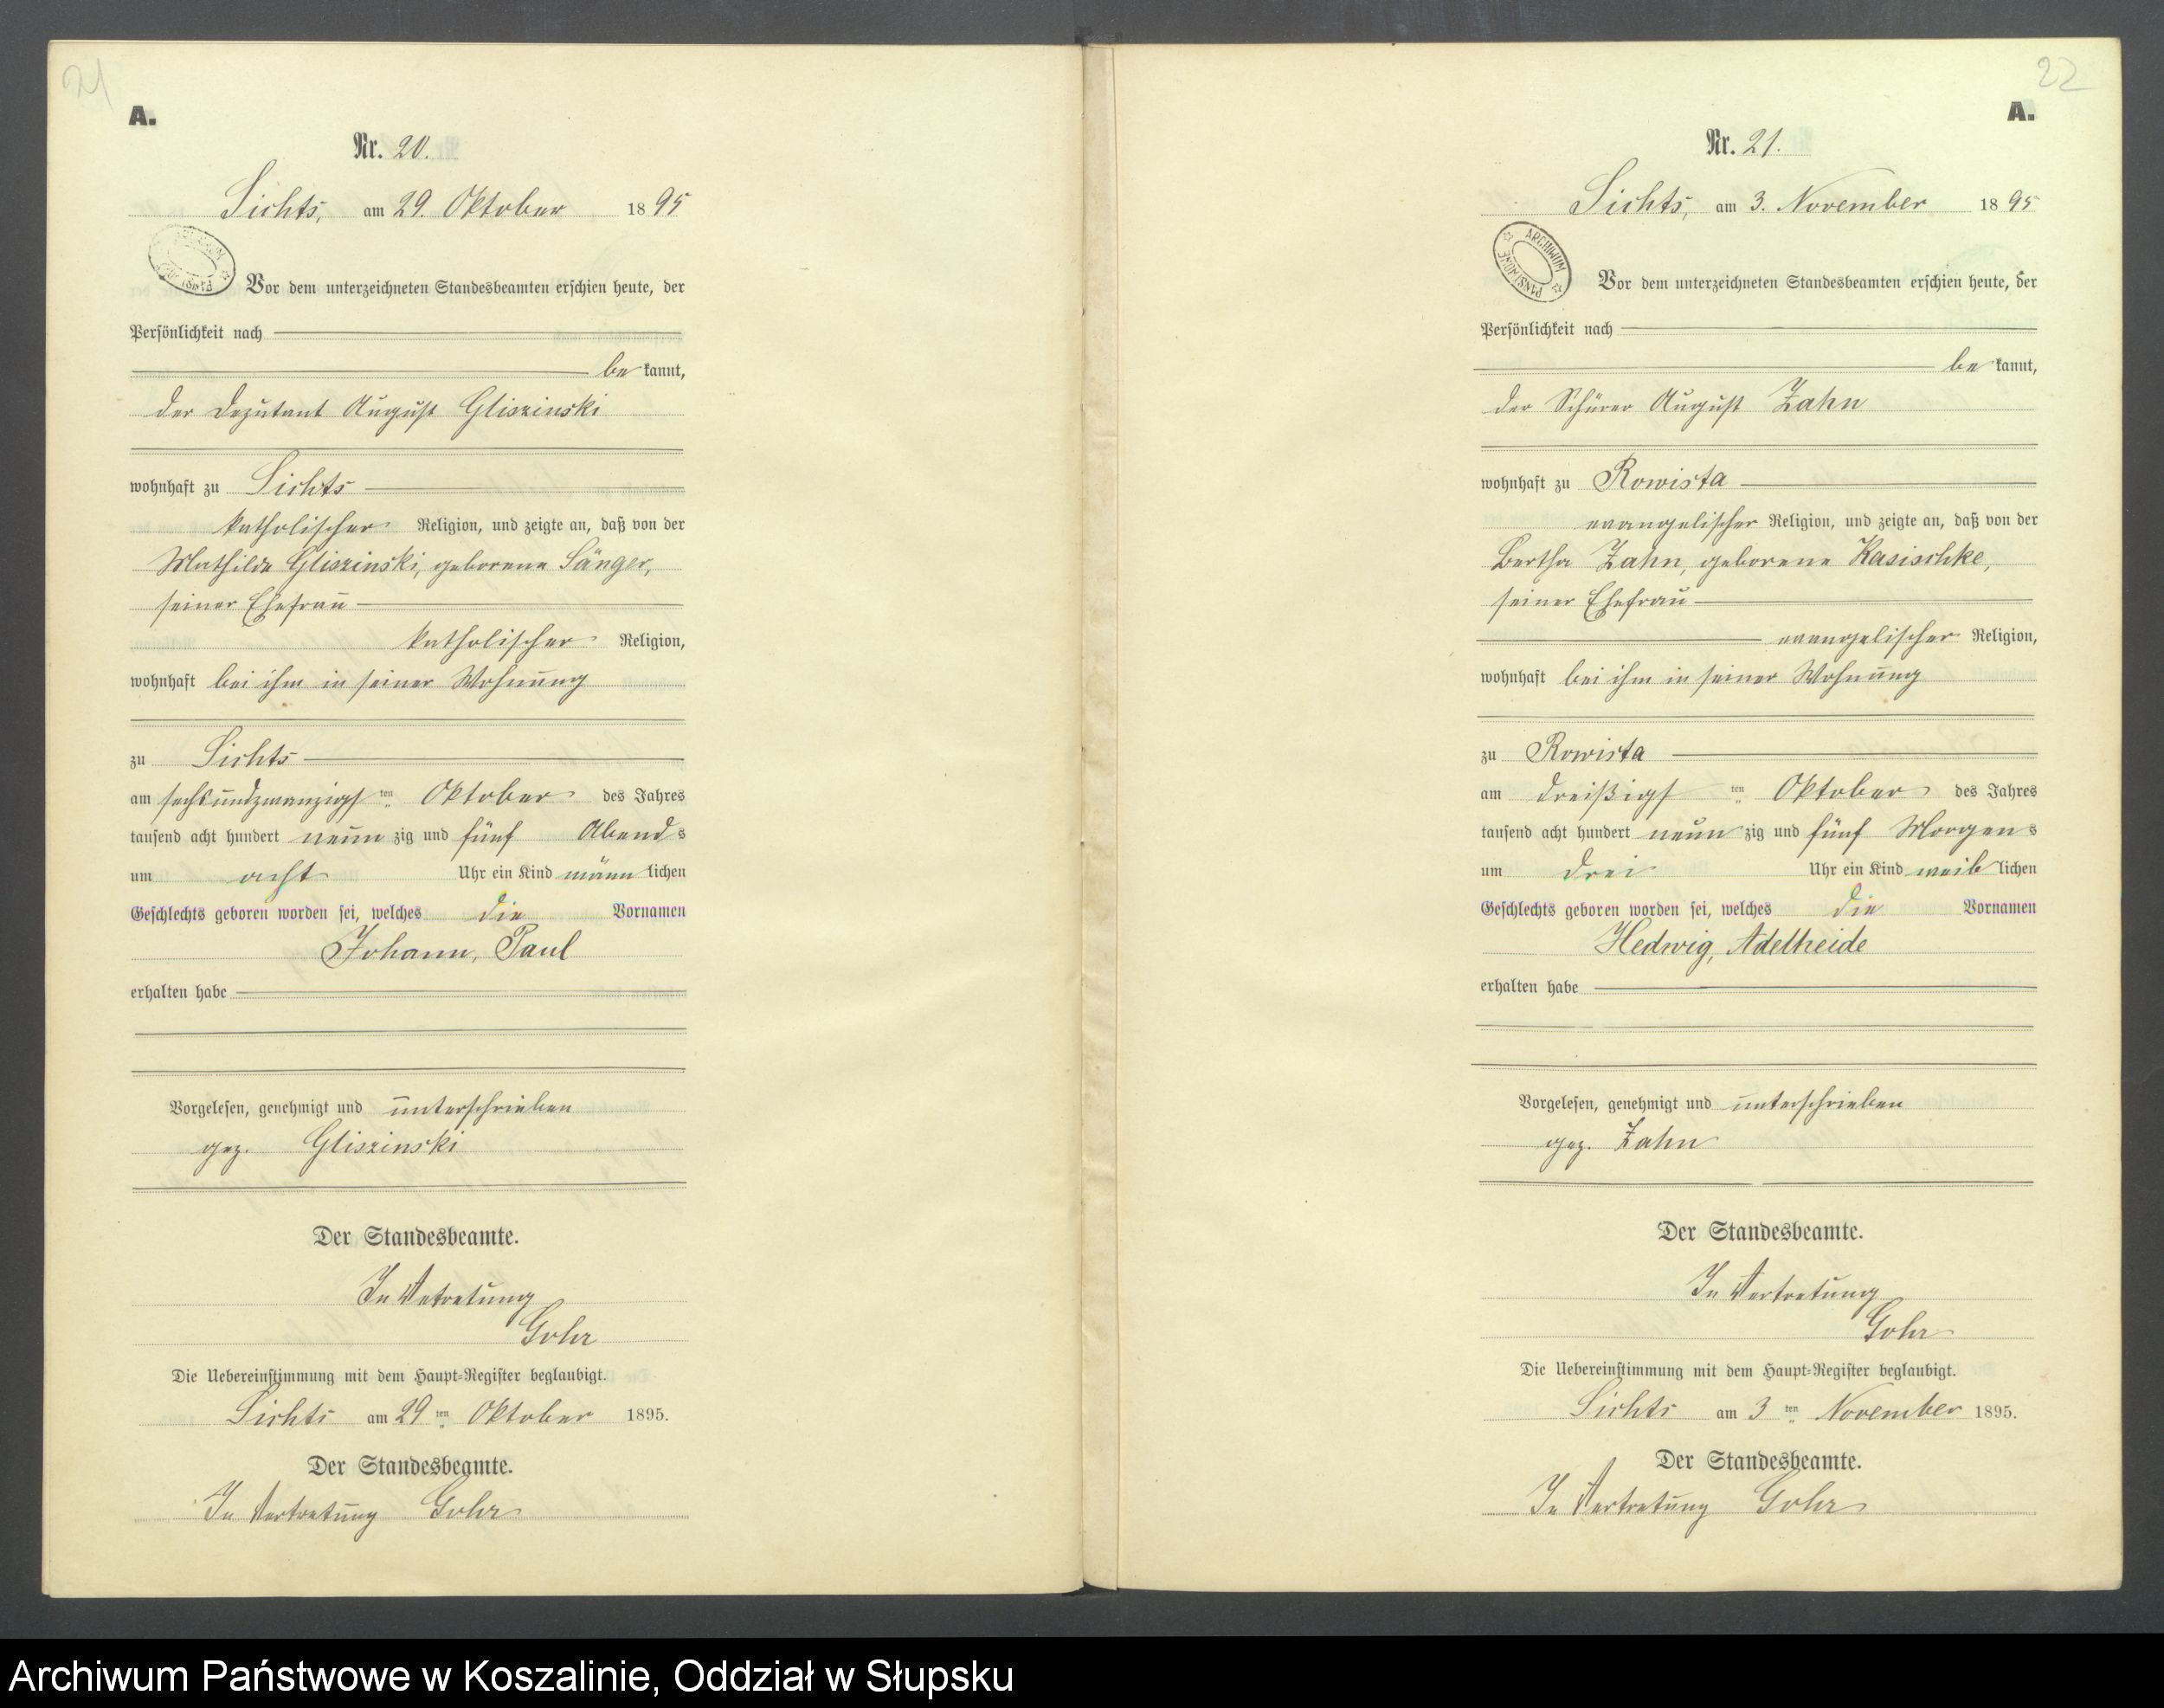 21
A.
Nr. 20.
Sichts, am 29. Oktober 1895
Vor dem unterzeichneten Standesbeamten erschien heute, der
Persönlichkeit nach
be kannt,
der Deputant August Gliszinski
wohnhaft zu Sichts
katholischer Religion, und zeigte an, daß von der
Mathilde Gliszinski, geborene Sänger,
seiner Ehefrau
katholischer Religion,
wohnhaft bei ihm in seiner Wohnung
zu Sichts
am sechsundzwanzigst ten Oktober des Jahres
tausend acht hundert neun zig und fünf Abends
um acht Uhr ein Kind männ lichen
Geschlechts geboren worden sei, welches die Vornamen
Johann, Paul
erhalten habe
Vorgelesen, genehmigt und unterschrieben
gez. Gliszinski
Der Standesbeamte.
In Vetretung
Gohr
Die Uebereinstimmung mit dem Haupt-Register beglaubigt.
Sichts am 29 ten Oktober 1895.
Der Standesbeamte.
In Vertretung Gohr
22
A.
Nr. 21.
Sichts, am 3. November 1895
ARCHIWUM PAŃSTWOWE
Vor dem unterzeichneten Standesbeamten erschien heute, der
Persönlichkeit nach
be kannt,
der Schürer August Zahn
wohnhaft zu Rowista
evangelischer Religion, und zeigte an, daß von der
Bertha Zahn, geborene Kasischke,
seiner Ehefrau
evangelischer Religion,
wohnhaft bei ihm in seiner Wohnung
zu Rowista
am dreißigst ten Oktober des Jahres
tausend acht hundert neun zig und fünf Morgens
um drei Uhr ein Kind weib lichen
Geschlechts geboren worden sei, welches die Vornamen
Hedwig, Adelheide
erhalten habe
Vorgelesen, genehmigt und unterschrieben
gez. Zahn
Der Standesbeamte.
In Vertretung
Gohr
Die Uebereinstimmung mit dem Haupt-Register beglaubigt.
Sichts am 3 ten November 1895.
Der Standesbeamte.
In Vertretung Gohr
Archiwum Państwowe w Koszalinie, Oddział w Słupsku